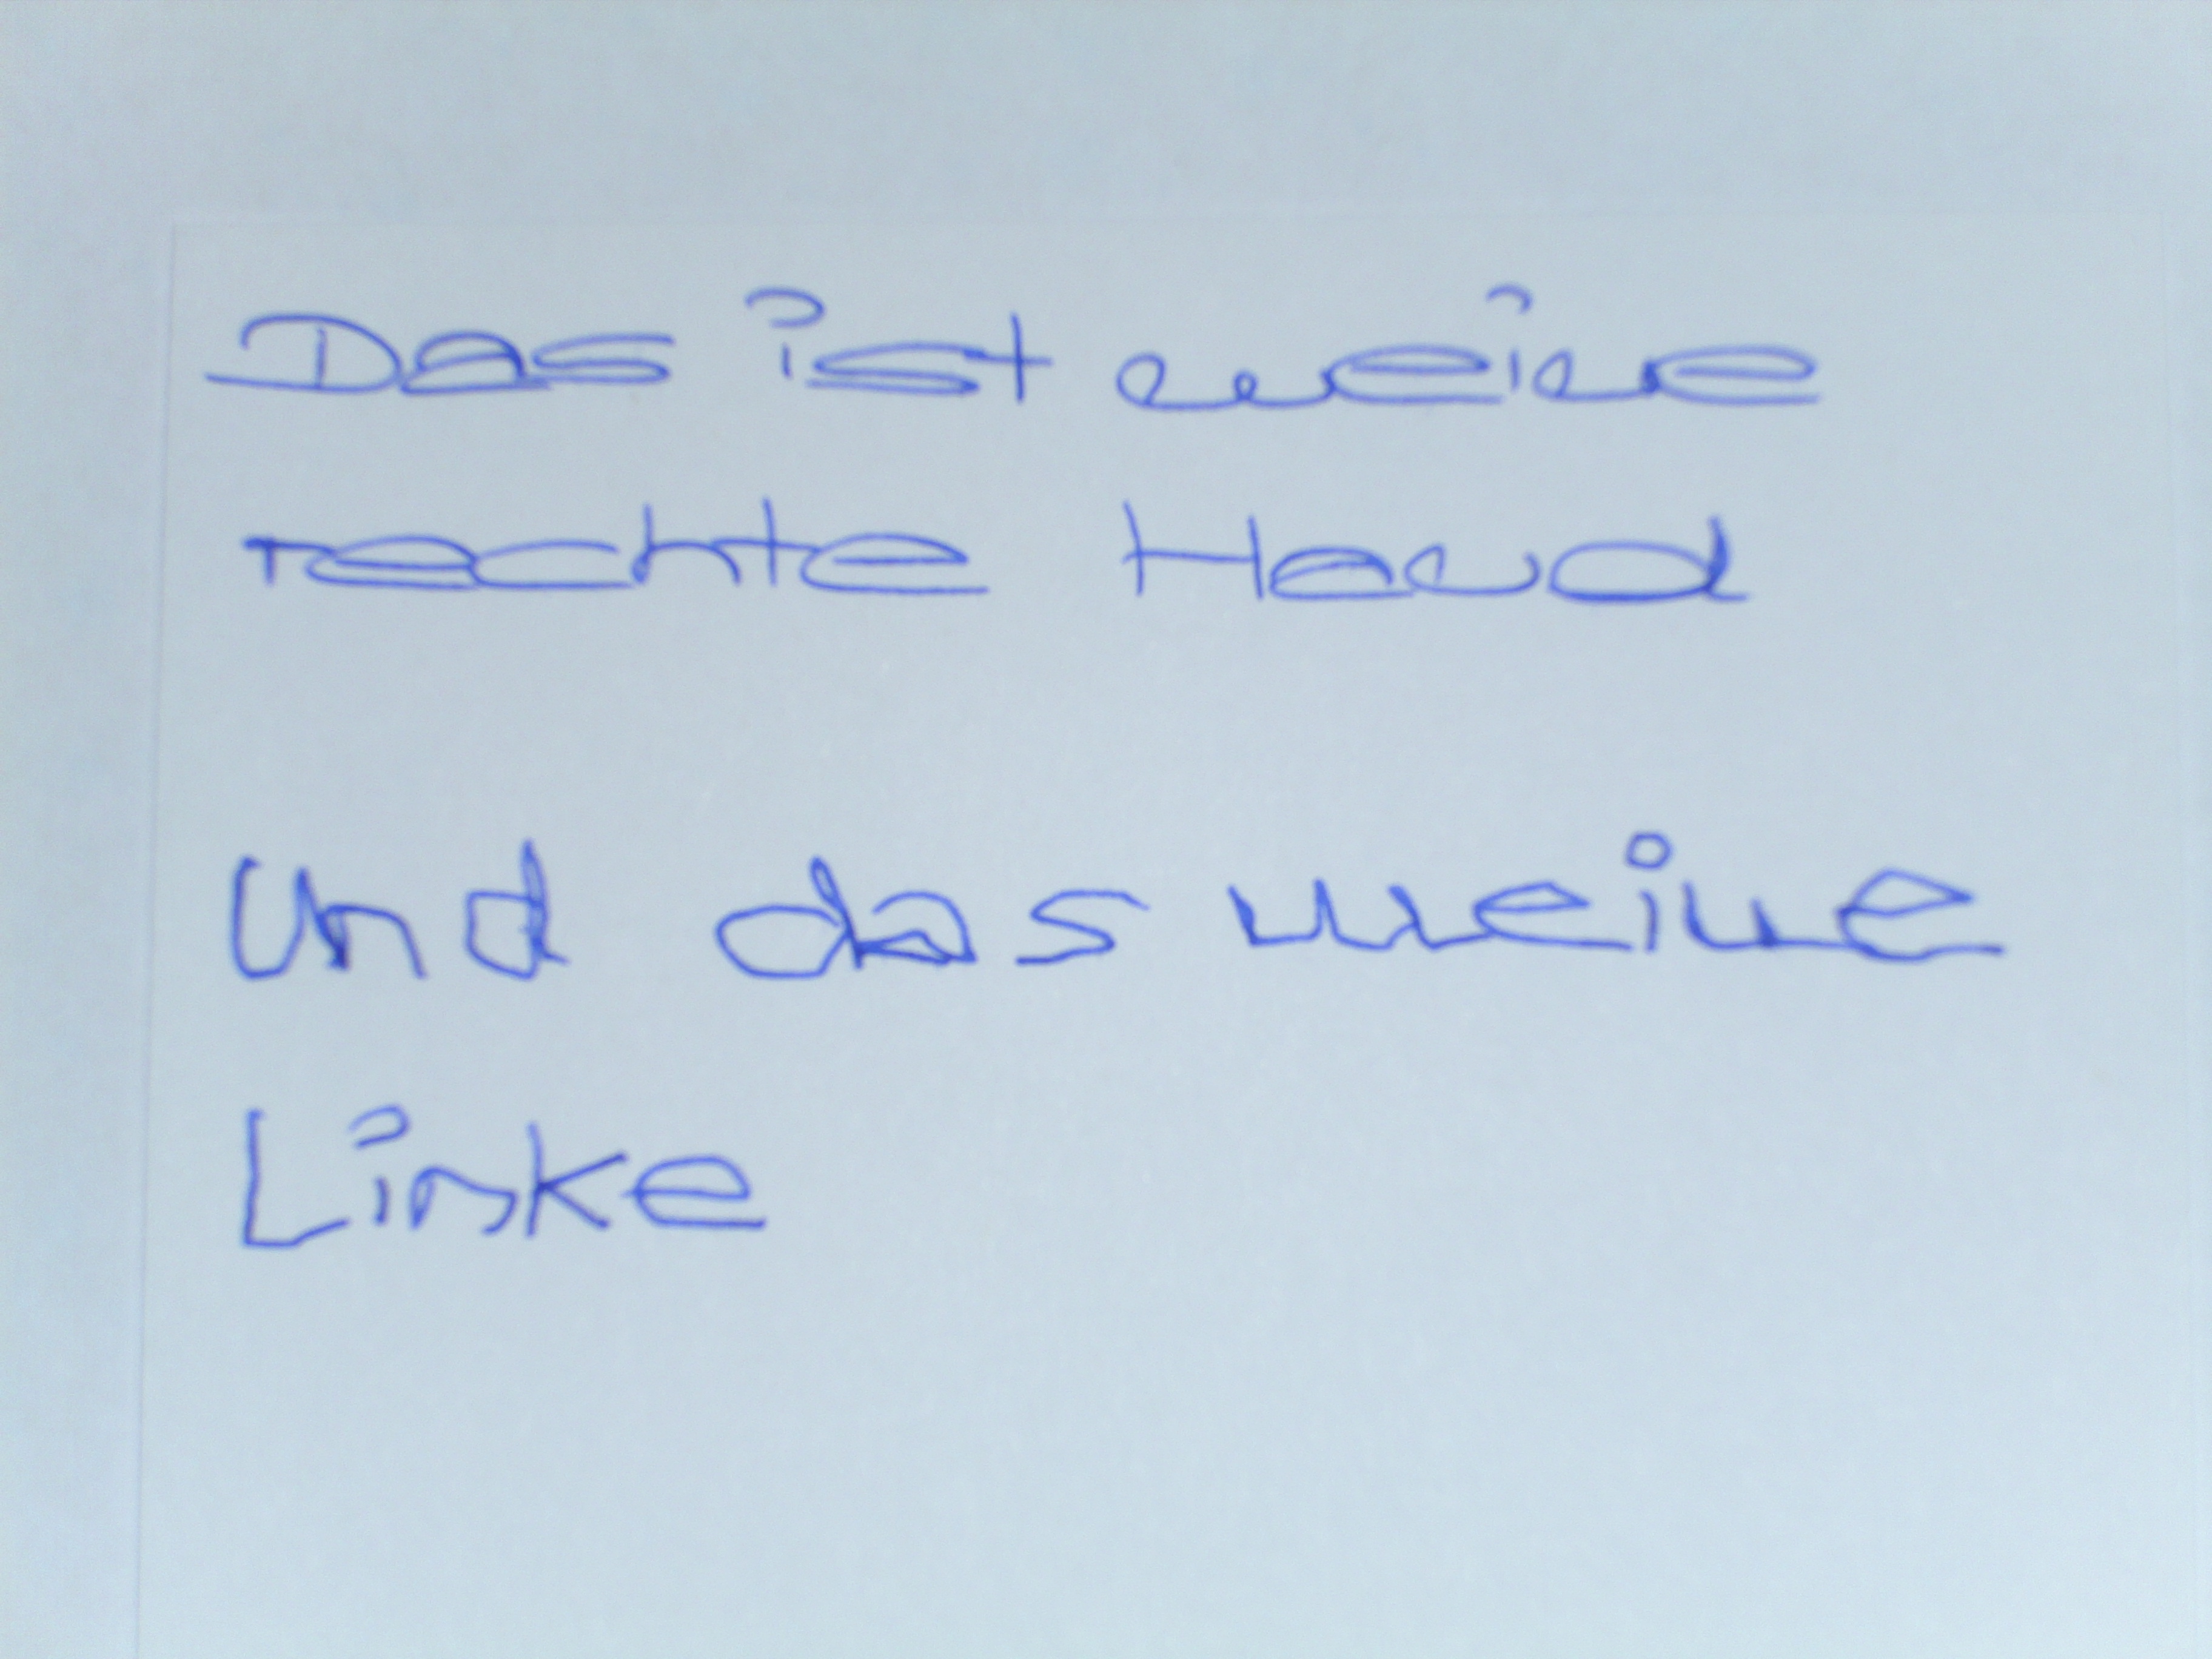 Das ist meine
rechte Hand
und das meine
Linke